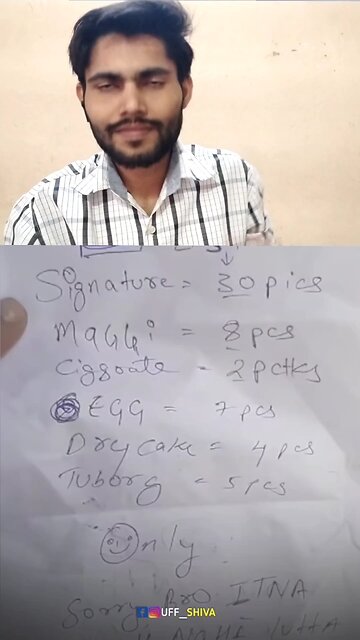 Signature = 30 pics
MaGGi = 8 pcs
Ciggoate - 2 pctks
EGG = 7 pcs
Dry cake = 4 pcs
Tuborg = 5 pcs
Only
Sorry Bro ITNA
NOHE
UFF_SHIVA